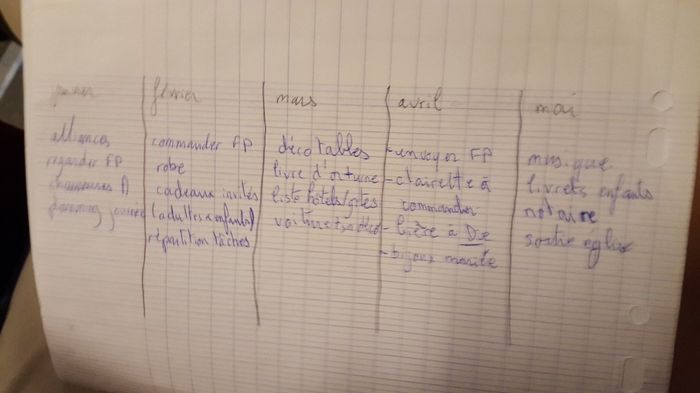 janvier
alliances
regarder FP
chaussures A
planning journée
février
commander FP
robe
cadeaux invités
(adultes + enfants)
répartition tâches
mars
déco tables
livre d'or + urne
liste hôtels/gîtes
voiture + sa déco
avril
- envoyer FP
- clairette à
commander
- bière à Die
- bijoux mariée
mai
musique
livrets enfants
notaire
sortie église